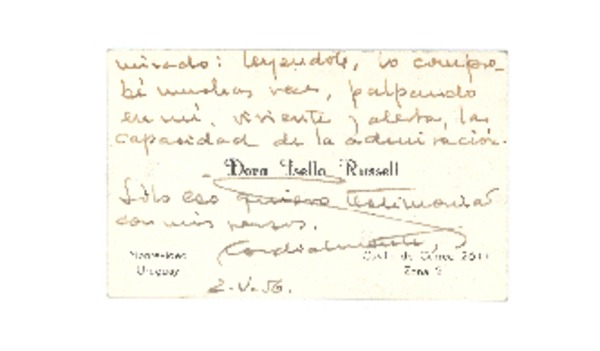 mirado: leyéndole, lo compro-
bé muchas veces, palpando
en mí, viviente y alerta, la
capacidad de la admiración.
Dora Isella Russell
Sólo eso quiero testimoniar
con mis versos.
Cordialmente,
Montevideo
Uruguay
de Correo
Zona 2
2-V-56.